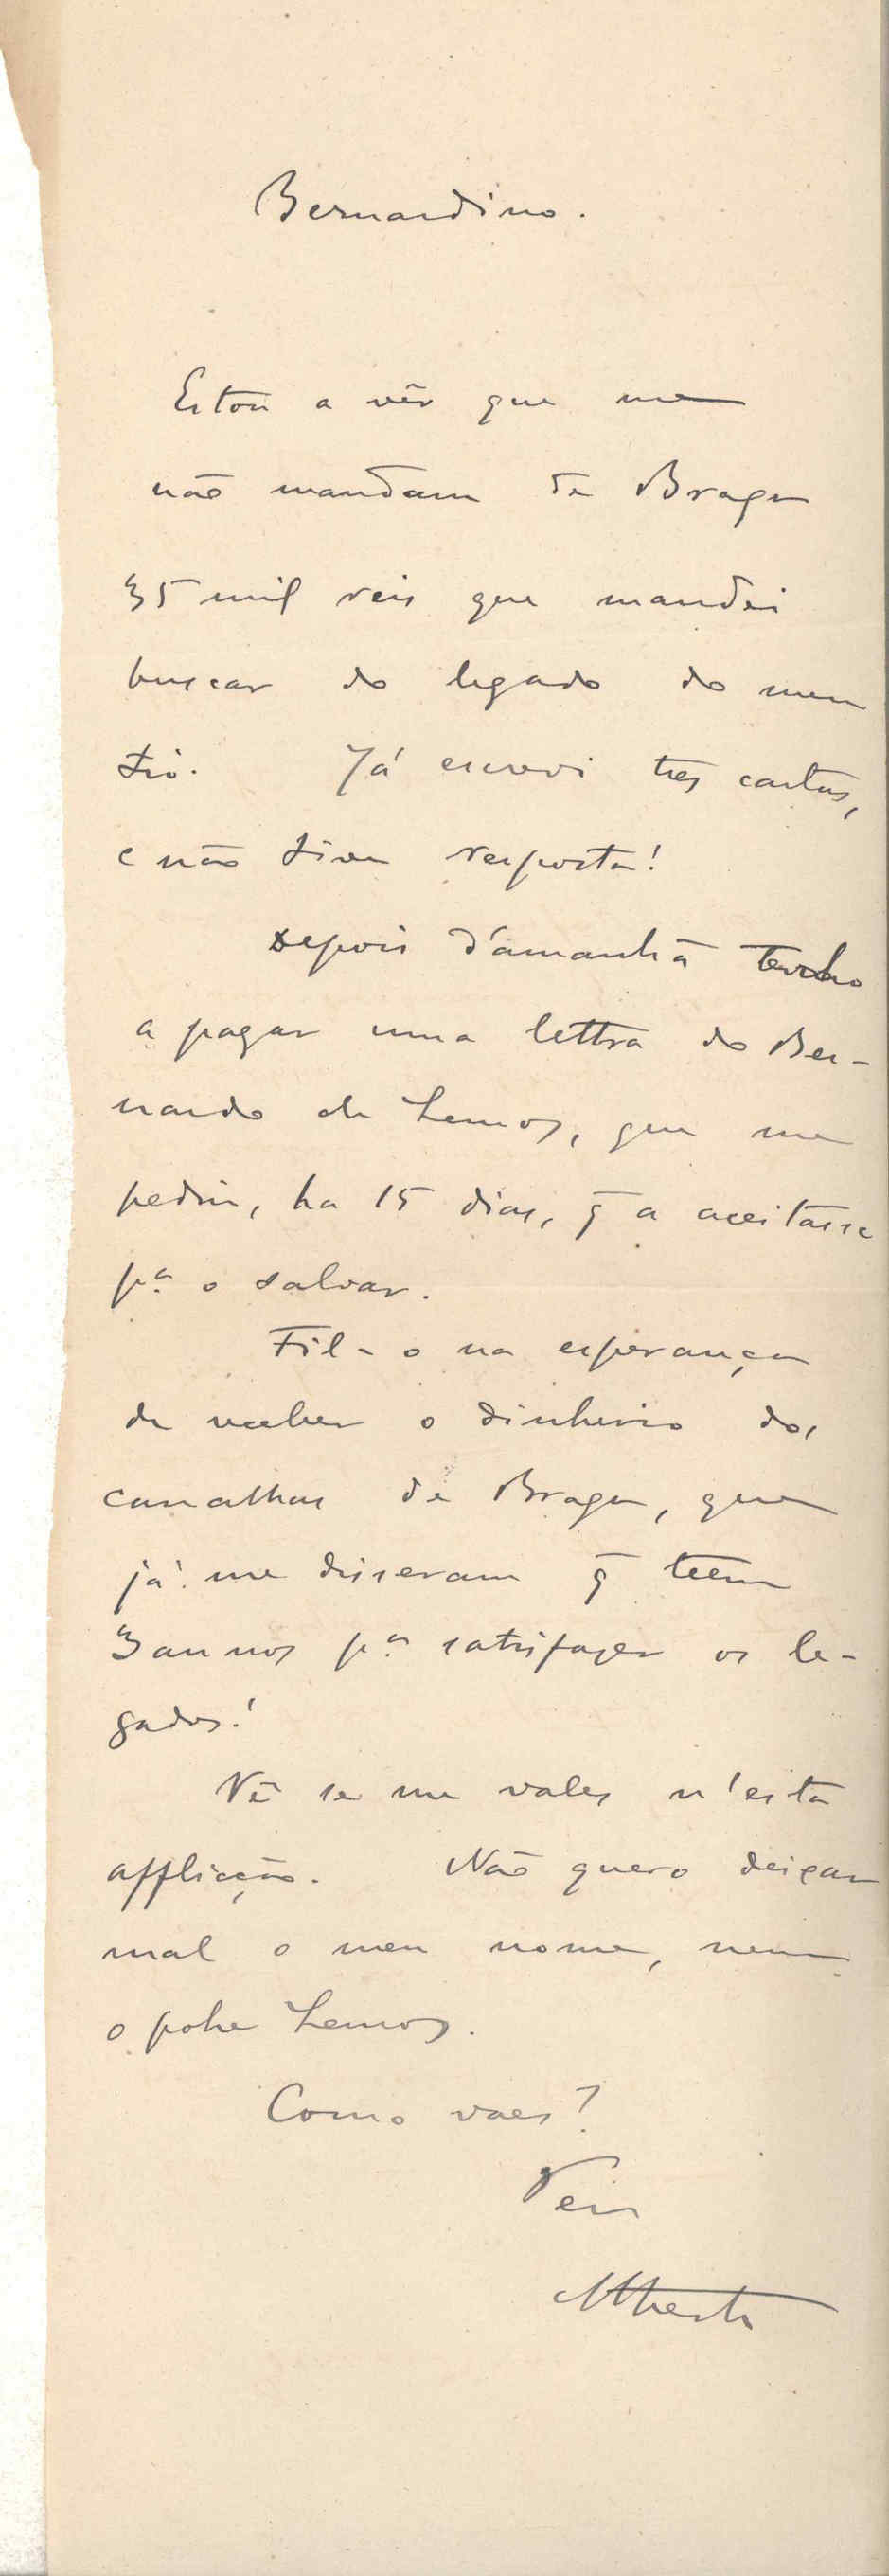 Bernardino.
Estou a vêr que me
não mandam de Braga
35 mil reis que mandei
buscar do legado do meu
tio. Já escrevi tres cartas,
e não tive resposta!
Depois d'amanhã tenho
a pagar uma lettra do Ber-
nardo de Lemos, que me
pediu, ha 15 dias, q̃ a aceitasse
pª o salvar.
Fil-o na esperança
de receber o dinheiro dos
canalhas de Braga, que
já me disseram q̃ teem
3 annos pª satisfazer os le-
gados!
Vê se me vales n'esta
afflicção. Não quero deixar
mal o meu nome, nem
o pobre Lemos.
Como vaes?
Teu
Alberto